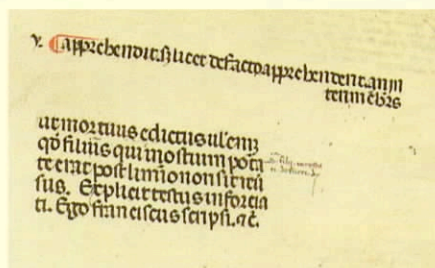 v. Capprehendit. sʒ licet de facto apprehenderit. anim
tenimēbrs
ut mortuus edictus ul' emʒ
qđ filius qui mostium potā
te erat post liminō non sit reū
sus. Explicit testus inforcia
ti. Ego franciscus scripsi. ⁊c̄.